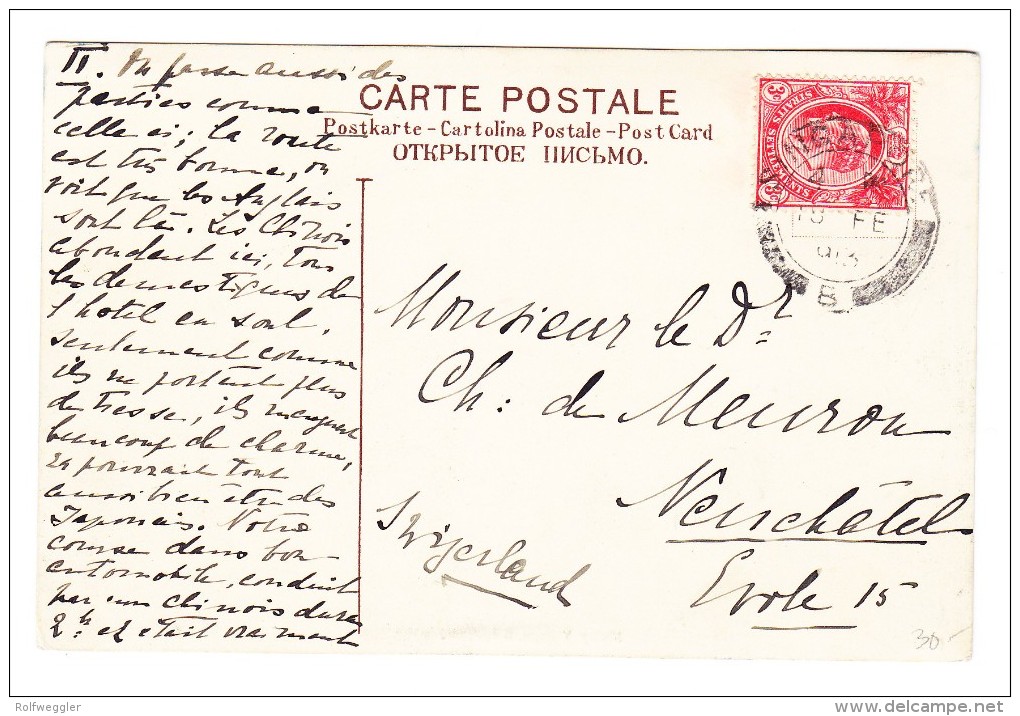 II. On passe aussi des
parties comme
celle ci; la route
est très bonne, on
voit que les Anglais
sont là. Les Chinois
abondent ici, tous
les domestiques de
l'hotel en sont.
seulement comme
ils ne portent plus
de tresse, ils manquent
beaucoup de charme,
ça pourrait tout
aussi bien être des
Japonais. Notre
course dans bon
automobile, conduit
par un chinois dura
2h. et était vraiment
CARTE POSTALE
Postkarte - Cartolina Postale - Post Card
ОТКРЫТОЕ ПИСЬМО.
3c
3c
STRAITS SETTLEMENTS
18 FE
913
B
Monsieur le Dr
Ch: de Meuron
Neuchâtel
Evole 15
Switzerland
30.-
Rolfweggler
delcampe.net